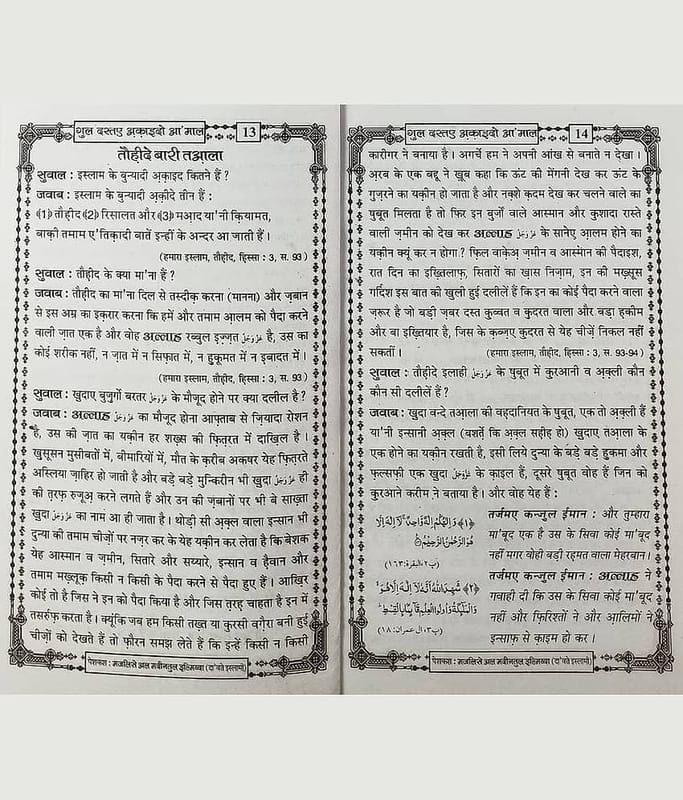 गुल दस्तए अक़ाइदो आ'माल 13
तौहीदे बारी तआ़ला
सुवाल : इस्लाम के बुन्यादी अ़क़ाइद कितने हैं ?
जवाब : इस्लाम के बुन्यादी अ़क़ीदे तीन हैं :
《1》 तौहीद 《2》 रिसालत और 《3》 मआ़द या'नी क़ियामत,
बाक़ी तमाम ए'तिक़ादी बातें इन्हीं के अन्दर आ जाती हैं ।
(हमारा इस्लाम, तौहीद, हिस्सा : 3, स. 93)
सुवाल : तौहीद के क्या मा'ना हैं ?
जवाब : तौहीद का मा'ना दिल से तस्दीक़ करना (मानना) और ज़बान
से इस अम्र का इक़रार करना कि हमें और तमाम आ़लम को पैदा करने
वाली ज़ात एक है और वोह अल्लाह रब्बुल इ़ज़्ज़त عَزَّوَجَلَّ है, उस का
कोई शरीक नहीं, न ज़ात में न सिफ़ात में, न हुकूमत में न इ़बादत में ।
(हमारा इस्लाम, तौहीद, हिस्सा : 3, स. 93)
सुवाल : ख़ुदाए बुज़ुर्गो बरतर عَزَّوَجَلَّ के मौजूद होने पर क्या दलील है ?
जवाब : अल्लाह عَزَّوَجَلَّ का मौजूद होना आफ़्ताब से ज़ियादा रोशन
है, उस की ज़ात का यक़ीन हर शख़्स की फ़ित़रत में दाख़िल है ।
ख़ुसूसन मुसीबतों में, बीमारियों में, मौत के क़रीब अकसर येह फ़ित़रते
अस्लिया ज़ाहिर हो जाती है और बड़े बड़े मुन्किरीन भी ख़ुदा عَزَّوَجَلَّ ही
की त़रफ़ रुजूअ़ करने लगते हैं और उन की ज़बानों पर भी बे साख़्ता
ख़ुदा عَزَّوَجَلَّ का नाम आ ही जाता है । थोड़ी सी अ़क़्ल वाला इन्सान भी
दुन्या की तमाम चीज़ों पर नज़र कर के येह यक़ीन कर लेता है कि बेशक
येह आस्मान व ज़मीन, सितारे और सय्यारे, इन्सान व हैवान और
तमाम मख़्लूक़ किसी न किसी के पैदा करने से पैदा हुए हैं । आख़िर
कोई तो है जिस ने इन को पैदा किया है और जिस त़रह़ चाहता है इन में
तसर्रुफ़ करता है । क्यूंकि जब हम किसी तख़्त या कुरसी वग़ैरा बनी हुई
चीज़ों को देखते हैं तो फ़ौरन समझ लेते हैं कि इन्हें किसी न किसी
पेशकश : मजलिसे अल मदीनतुल इ़ल्मिय्या (दा'वते इस्लामी)
गुल दस्तए अक़ाइदो आ'माल 14
कारीगर ने बनाया है । अगर्चे हम ने अपनी आंख से बनाते न देखा ।
अ़रब के एक बद्दू ने ख़ूब कहा कि ऊंट की मेंगनी देख कर ऊंट के
गुज़रने का यक़ीन हो जाता है और नक़्शे क़दम देख कर चलने वाले का
सुबूत मिलता है तो फिर इन बुर्जों वाले आस्मान और कुशादा रास्ते
वाली ज़मीन को देख कर अल्लाह عَزَّوَجَلَّ के सानेए़ आ़लम होने का
यक़ीन क्यूं कर न होगा ? फ़िल वाक़ेअ़ ज़मीन व आस्मान की पैदाइश,
रात दिन का इख़्तिलाफ़, सितारों का ख़ास निज़ाम, इन की मख़्सूस
गर्दिश इस बात की खुली हुई दलीलें हैं कि इन का कोई पैदा करने वाला
ज़रूर है जो बड़ी ज़बर दस्त क़ुव्वत व क़ुदरत वाला और बड़ा ह़कीम
और बा इख़्तियार है, जिस के क़ब्ज़ए क़ुदरत से येह चीज़ें निकल नहीं
सकतीं । (हमारा इस्लाम, तौहीद, हिस्सा : 3, स. 93-94)
सुवाल : तौहीदे इलाही عَزَّوَجَلَّ के सुबूत में क़ुरआनी व अ़क़्ली कौन
कौन सी दलीलें हैं ?
जवाब : ख़ुदा वन्दे तआ़ला की वह़दानियत के सुबूत, एक तो अ़क़्ली हैं
या'नी इन्सानी अ़क़्ल (बशर्ते कि अ़क़्ल सह़ीह़ हो) ख़ुदाए तआ़ला के
एक होने का यक़ीन रखती है, इसी लिये दुन्या के बड़े बड़े हुकमा और
फ़ल्सफ़ी एक ख़ुदा عَزَّوَجَلَّ के क़ाइल हैं, दूसरे सुबूत वोह हैं जिन को
क़ुरआने करीम ने बताया है । और वोह येह हैं :
﴿١﴾ وَاِلٰهُكُمْ اِلٰهٌ وَّاحِدٌ ۚ لَاۤ اِلٰهَ اِلَّا
هُوَ الرَّحْمٰنُ الرَّحِیْمُ
(پ٢،البقرة:١٦٣)
तर्जमए कन्ज़ुल ईमान : और तुम्हारा
मा'बूद एक है उस के सिवा कोई मा'बूद
नहीं मगर वोही बड़ी रह़मत वाला मेहरबान ।
﴿٢﴾ شَهِدَ اللّٰهُ اَنَّهٗ لَاۤ اِلٰهَ اِلَّا هُوَ ۙ
وَالْمَلٰٓىِٕكَةُ وَاُولُوا الْعِلْمِ قَآىِٕمًۢا بِالْقِسْطِ ؕ
(پ٣،ال عمران:١٨)
तर्जमए कन्ज़ुल ईमान : अल्लाह ने
गवाही दी कि उस के सिवा कोई मा'बूद
नहीं और फ़िरिश्तों ने और आ़लिमों ने
इन्साफ़ से क़ाइम हो कर ।
पेशकश : मजलिसे अल मदीनतुल इ़ल्मिय्या (दा'वते इस्लामी)